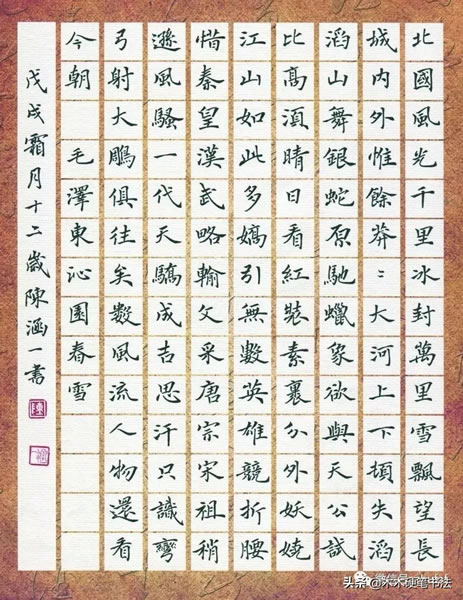 北國風光千里冰封萬里雪飄望長
城內外惟餘莽〻大河上下頓失滔
滔山舞銀蛇原馳蠟象欲與天公試
比高湏晴日看紅裝素裹分外妖嬈
江山如此多嬌引無數英雄競折腰
惜秦皇漢武略輸文采唐宗宋祖稍
遜風騷一代天驕成吉思汗只識彎
弓射大鵰俱往矣數風流人物還看
今朝 毛澤東沁園春雪
戊戌霜月十二歲陳涵一書
陳
头条@木木硬笔书法